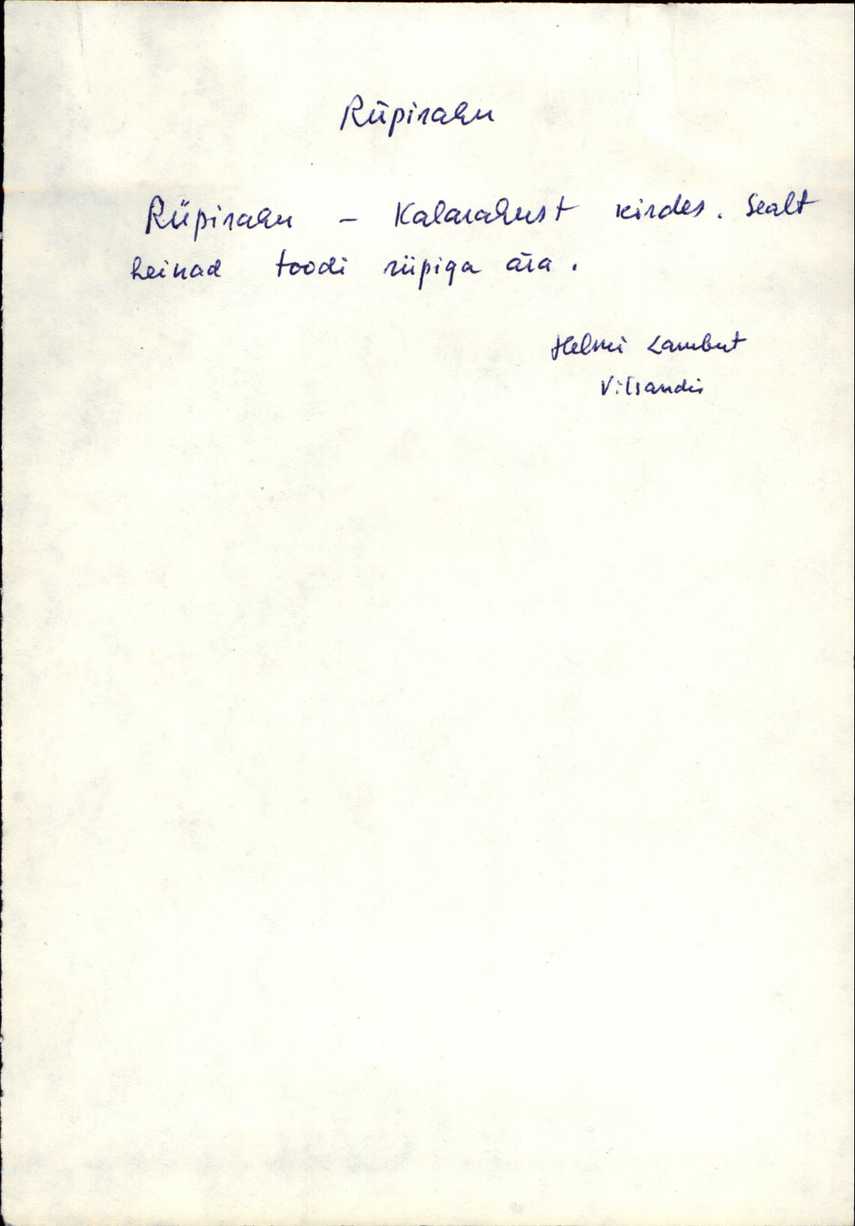 Rüpirahu
Rüpirahu – Kalarahust kirdes. Sealt
heinad toodi rüpiga ära.
Helmi Lambut
Vilsandis